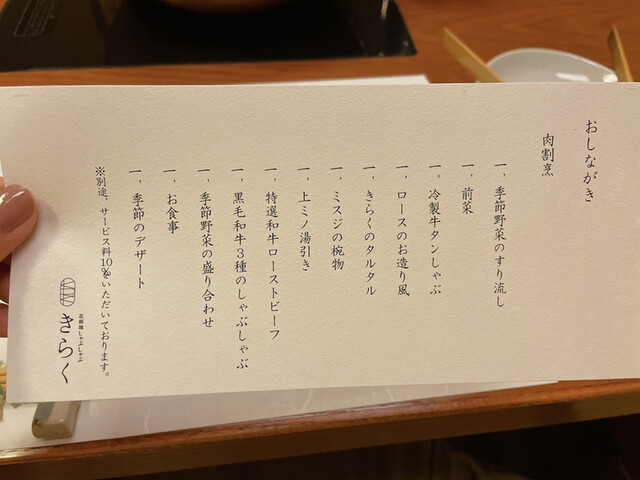 おしながき
肉割烹
一、季節野菜のすり流し
一、前菜
一、冷製牛タンしゃぶ
一、ロースのお造り風
一、きらくのタルタル
一、ミスジの椀物
一、上ミノ湯引き
一、特選和牛ローストビーフ
一、黒毛和牛3種のしゃぶしゃぶ
一、季節野菜の盛り合わせ
一、お食事
一、季節のデザート
※別途、サービス料10%をいただいております。
北新地しゃぶしゃぶ
きらく